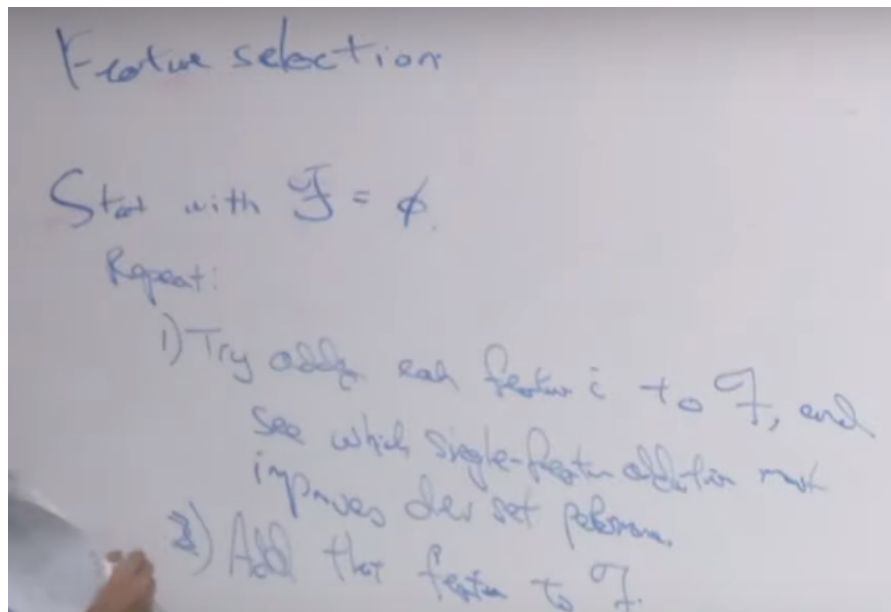 Feature selection
Start with ℱ = ∅.
Repeat:
1) Try adding each feature i to ℱ, and
see which single-feature addition most
improves dev set performance.
2) Add that feature to ℱ.